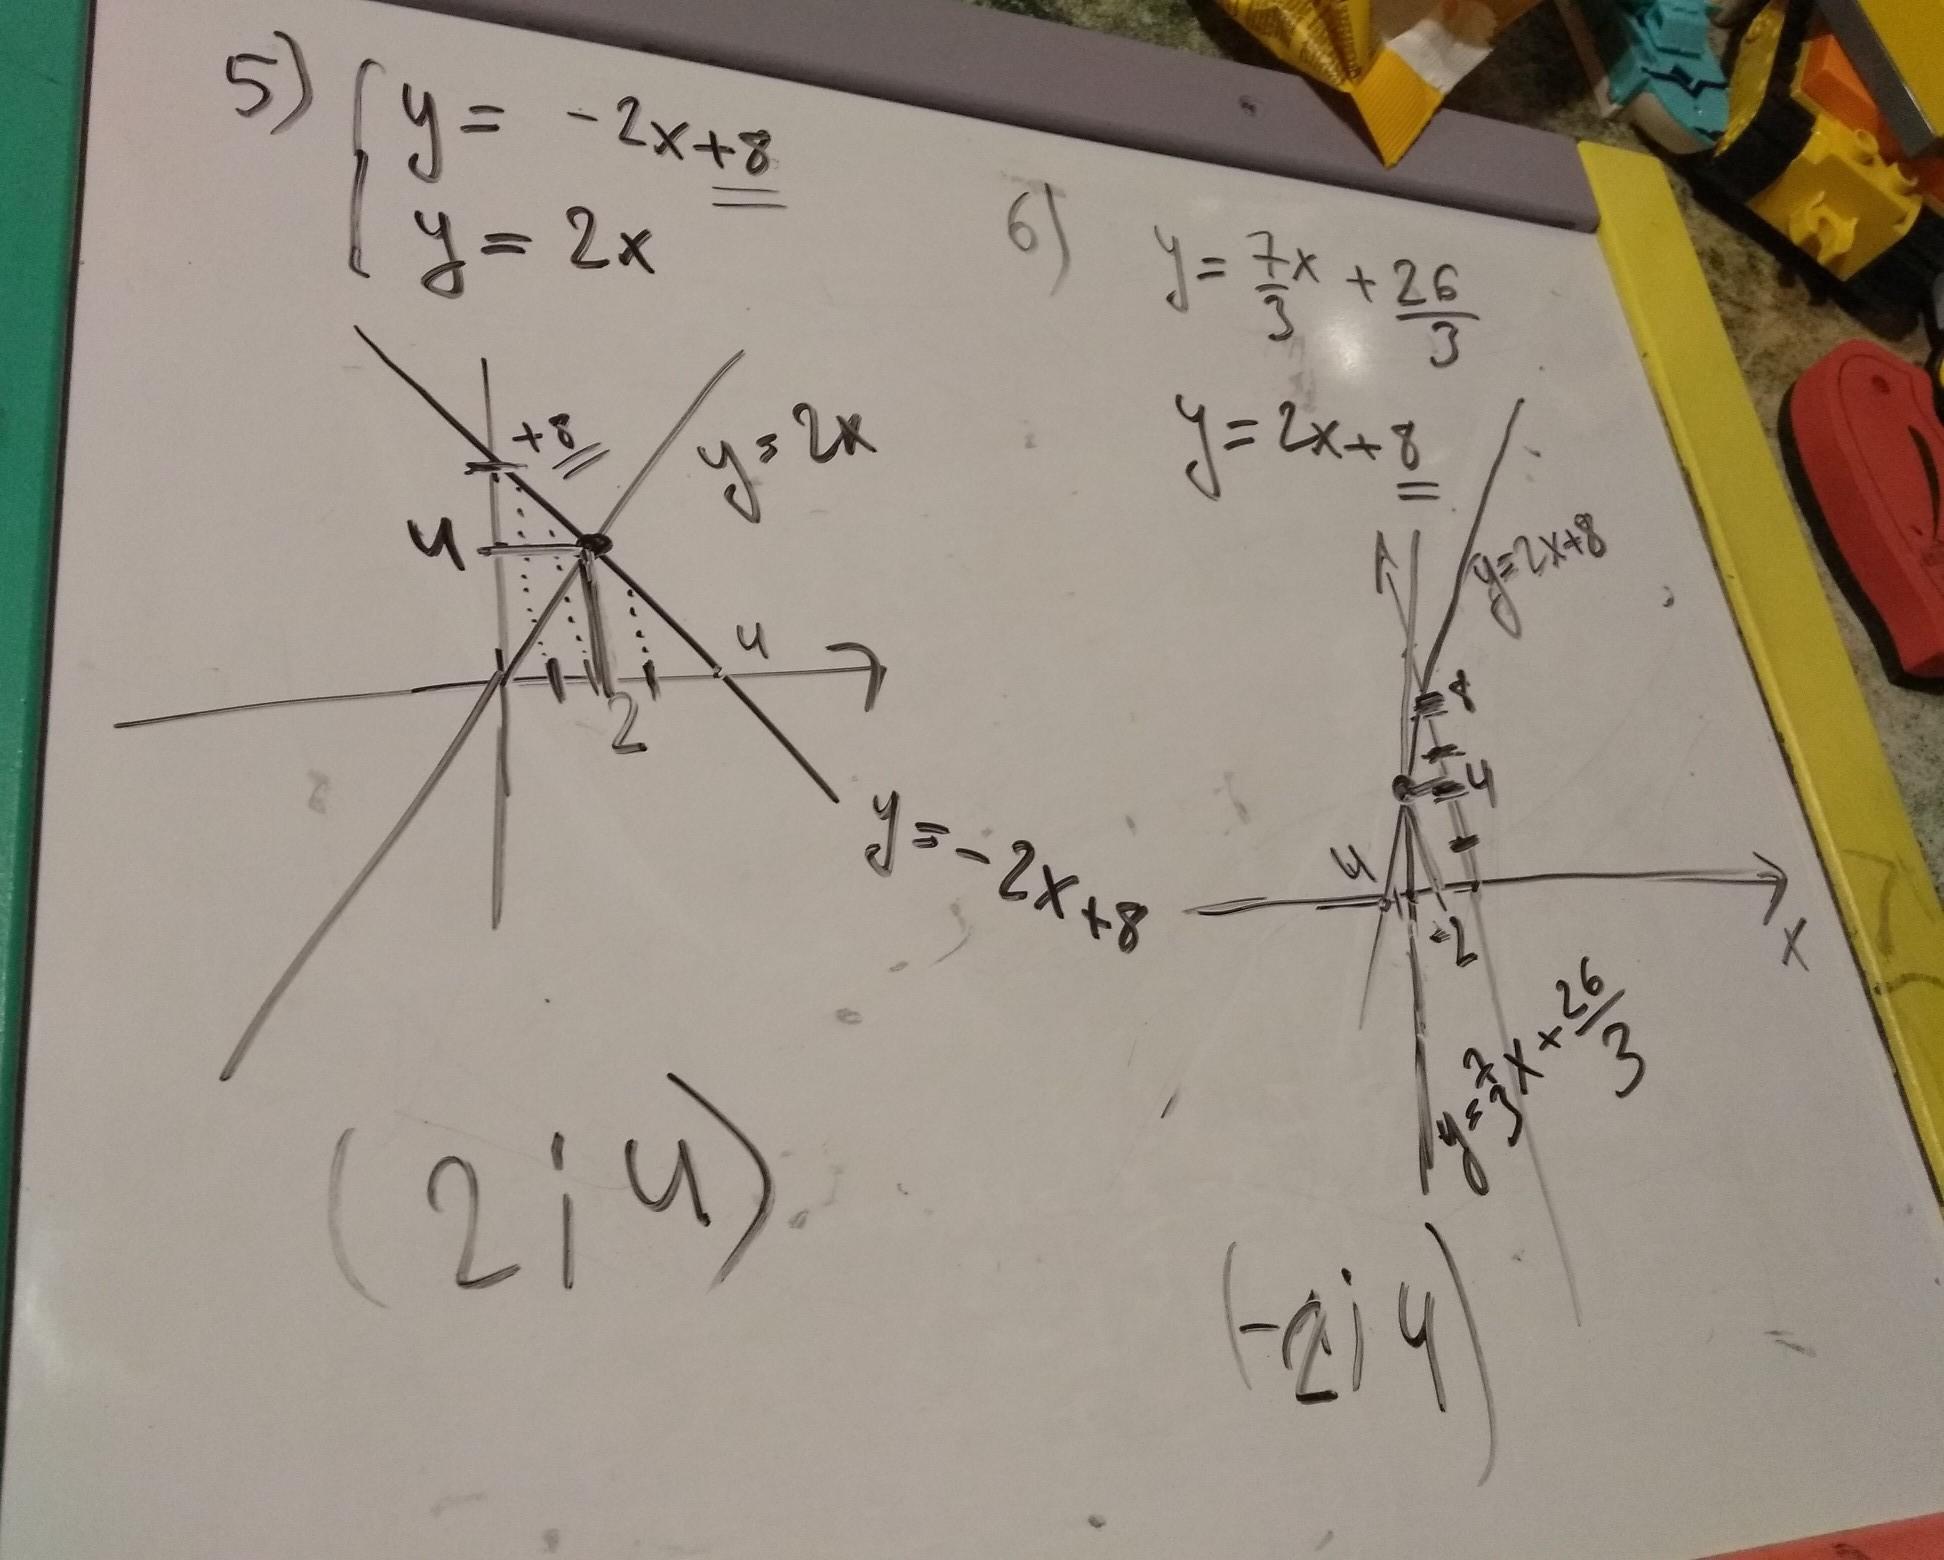 5)
y = -2x+8
y = 2x
+8
y = 2x
4
4
2
y = -2x+8
(2;4)
6)
y = 7/3 x + 26/3
y = 2x+8
y=2x+8
8
4
4
-2
x
y=7/3 x + 26/3
(-2;4)